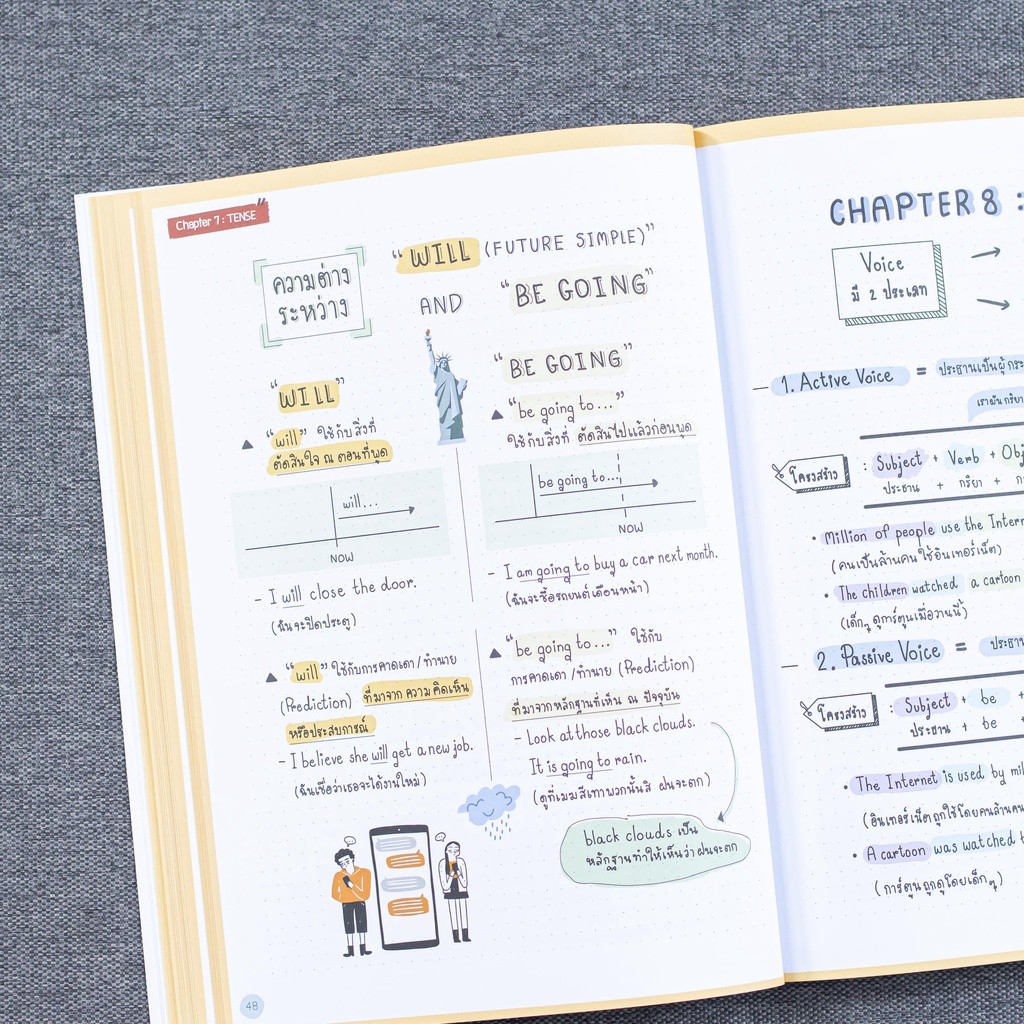 Chapter 7 : TENSE
ความต่าง
ระหว่าง
"WILL (FUTURE SIMPLE)"
AND "BE GOING"
"WILL"
"will" ใช้กับสิ่งที่
ตัดสินใจ ณ ตอนที่พูด
will...
NOW
- I will close the door.
(ฉันจะปิดประตู)
"will" ใช้กับการคาดเดา/ทำนาย
(Prediction) ที่มาจาก ความคิดเห็น
หรือประสบการณ์
- I believe she will get a new job.
(ฉันเชื่อว่าเธอจะได้งานใหม่)
"BE GOING"
"be going to..."
ใช้กับสิ่งที่ ตัดสินไปแล้วก่อนพูด
be going to...
NOW
- I am going to buy a car next month.
(ฉันจะซื้อรถยนต์เดือนหน้า)
"be going to..." ใช้กับ
การคาดเดา/ทำนาย (Prediction)
ที่มาจากหลักฐานที่เห็น ณ ปัจจุบัน
- Look at those black clouds.
It is going to rain.
(ดูที่เมฆสีเทาพวกนั้นสิ ฝนจะตก)
black clouds เป็น
หลักฐานทำให้เห็นว่าฝนจะตก
48
CHAPTER 8 :
Voice
มี 2 ประเภท
1. Active Voice =
ประธานเป็นผู้กระ
เราผันกริยา
โครงสร้าง : Subject + Verb + Obj
ประธาน + กริยา +
• Million of people use the Intern
(คนเป็นล้านคนใช้อินเทอร์เน็ต)
• The children watched a cartoon
(เด็กๆ ดูการ์ตูนเมื่อวานนี้)
2. Passive Voice = ประธาน
โครงสร้าง : Subject + be +
ประธาน + be +
• The Internet is used by mil
(อินเทอร์เน็ตถูกใช้โดยคนล้านคน
• A cartoon was watched
(การ์ตูนถูกดูโดยเด็กๆ)